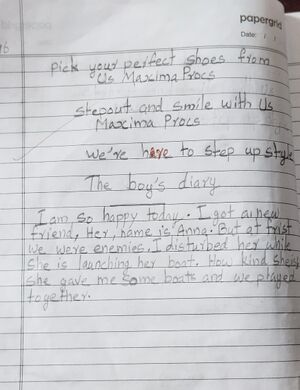 papergrid
Date: / /
Pick your perfect shoes from
Us Maxima Procs
Stepout and smile with Us
Maxima Procs
We're here to step up style
The boy's diary
I am so happy today. I got a new
friend, Her, name is Anna. But at frist
we were enemies, I disturbed her while
she is launching her boat. How kind sheis
she gave me some boats and we played
together.